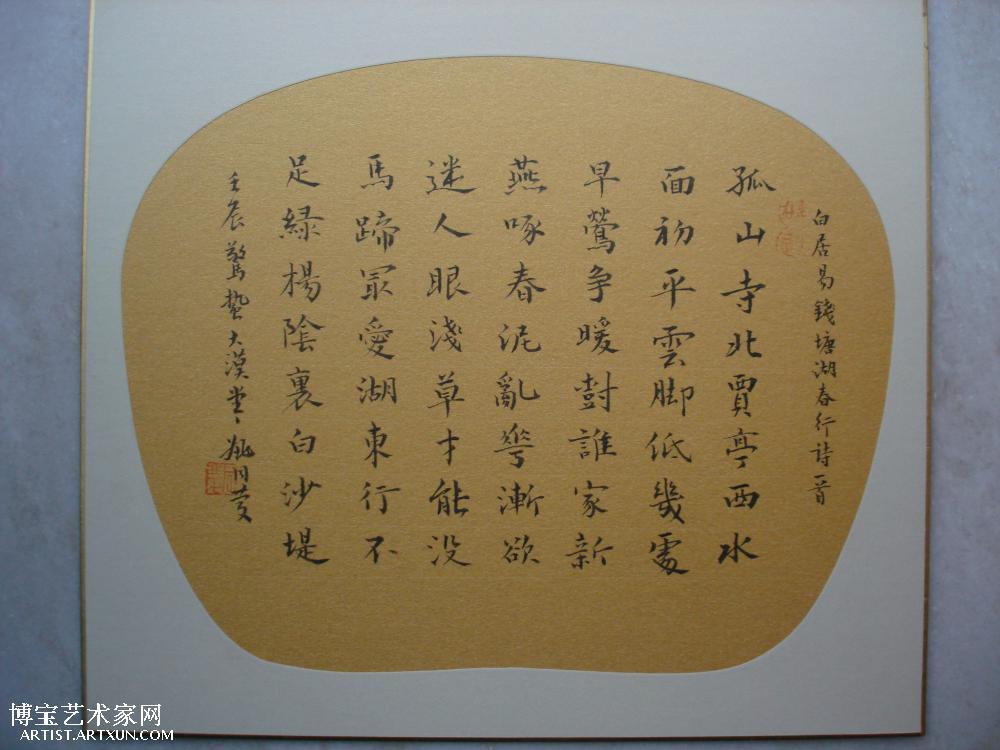 白居易錢塘湖春行詩一首
孤山寺北賈亭西水
面初平雲脚低幾處
早鶯争暖尌誰家新
燕啄春泥亂華漸欲
迷人眼淺草才能没
馬蹄冣愛湖東行不
足綠楊陰裏白沙堤
壬辰驚蟄大漠堂姚
博宝艺术家网
ARTIST.ARTXUN.COM